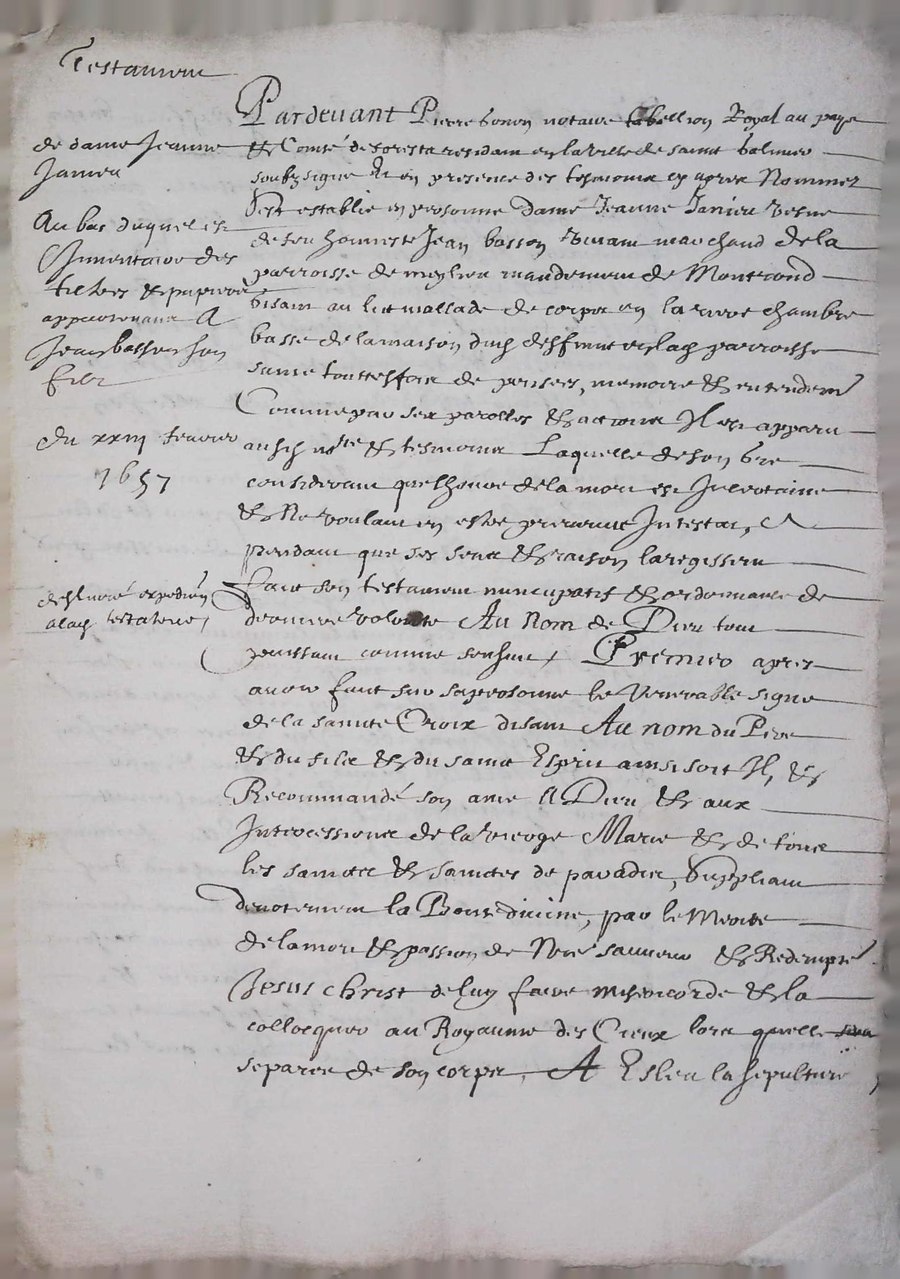 Testament
de dame Jeanne
Janieu
Au bas duquel est
Inventaire des
tiltres & papiers
appartenant A
Jean basson son
filz
du xxiii fevrier
1657
expedié
a lad testatrice
Pardevant Pierre notaire tabellion Royal au pays
& Comté de forestz residant en la ville de sainct Galmier
soubzsigne & en presence des tesmoins cy apres Nommez
S'est establie en personne Dame Jeanne Janieu vefve
de feu honneste Jean basson vivant marchand de la
parroisse de meylieu mandement de Montrond
gisant au lict mallade de corps en la chambre
basse de la maison dud deffunct en lad parroisse
saine touttesfois de pensees, memoire & entendemt
Comme par ses parolles & actions Il est apparu
ausd notre & tesmoins Laquelle de son gré
considerant que lheure de la mort est Incertaine
& Ne voulant en estre prevenue Intestat, A
pendant que ses sens & raison la regissent
faict son testament nuncupatif & ordonnance de
derniere volonte Au Nom de Dieu tout
puissant comme sensuit, Premier apres
avoir faict sur sa personne le Venerable signe
de la saincte Croix disant Au nom du Pere
& du filz & du sainct Esprit ainsi soit Il, &
Recommandé son ame A Dieu & aux
Intercessions de la Vierge Marie & de tous
les sainctz & sainctes de paradis, Suppliant
devotement la Bonté divine, par le Merite
de la mort & passion de Nore sauveur & Redempter
Jesus christ de luy faire misericorde & la
collocquer au Royaume des Cieux lors quelle sera
separee de son corps, A Esleu la sepulture